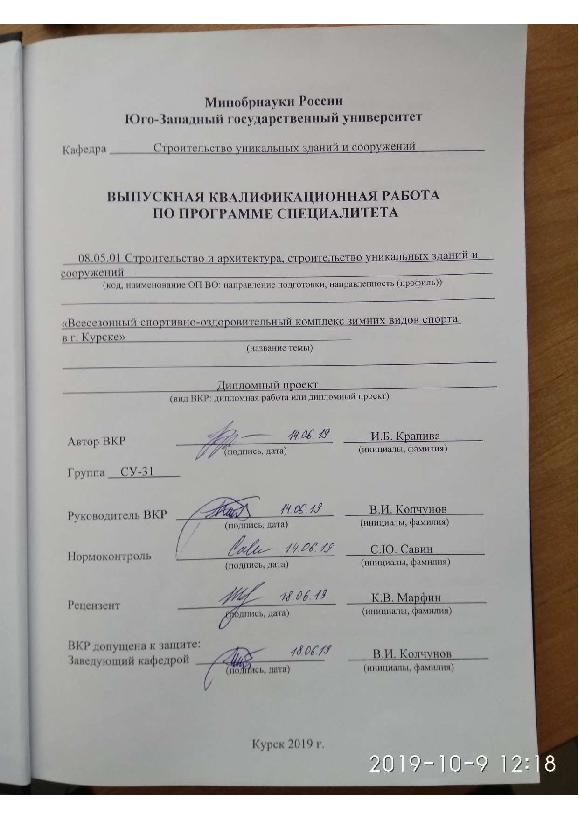 Минобрнауки России
Юго-Западный государственный университет
Кафедра Строительство уникальных зданий и сооружений
ВЫПУСКНАЯ КВАЛИФИКАЦИОННАЯ РАБОТА
ПО ПРОГРАММЕ СПЕЦИАЛИТЕТА
08.05.01 Строительство и архитектура, строительство уникальных зданий и
сооружений
(код, наименование ОП ВО: направление подготовки, направленность (профиль))
«Всесезонный спортивно-оздоровительный комплекс зимних видов спорта
в г. Курске»
(название темы)
Дипломный проект
(вид ВКР: дипломная работа или дипломный проект)
Автор ВКР 14.06.19 И.Б. Крапива
(подпись, дата) (инициалы, фамилия)
Группа СУ-31
Руководитель ВКР 14.06.19 В.И. Колчунов
(подпись, дата) (инициалы, фамилия)
Нормоконтроль 14.06.19 С.Ю. Савин
(подпись, дата) (инициалы, фамилия)
Рецензент 18.06.19 К.В. Марфин
(подпись, дата) (инициалы, фамилия)
ВКР допущена к защите:
Заведующий кафедрой 18.06.19 В.И. Колчунов
(подпись, дата) (инициалы, фамилия)
Курск 2019 г.
2019-10-9 12:18